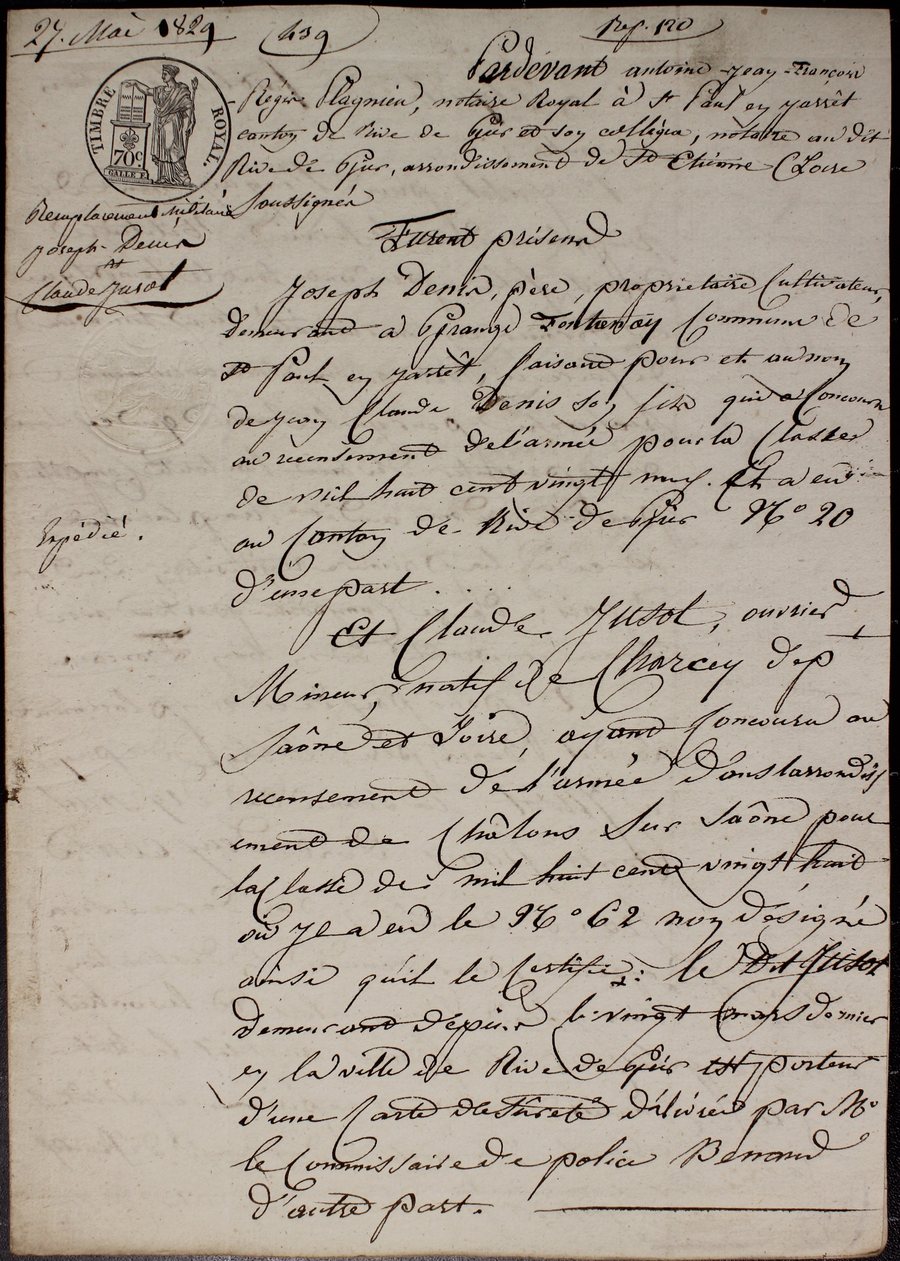 27. Mai 1829 (439) Rep. 120
TIMBRE ROYAL.
70c
GALLE F.
Pardevant antoine Jean François
Régis Plagnieu, notaire Royal à St Paul en jarrêt
canton de Rive de Gier et son collègue, notaire au dit
Rive de Gier, arrondissement de St Etienne (Loire
Soussignés
Remplacement Militaire
joseph Denis
et
Claude Jusot
Furent présens
Joseph Denis, père, propriétaire Cultivateur,
demeurant à Grange Fontenay Commune de
St Paul en jarrêt, faisant pour et au nom
de jean Claude Denis son fils qui a Concouru
au recensement de l'armée pour la Classe
de mil huit cent vingt neuf. Et a eu
au Canton de Rive de Gier No 20
d'une part.
Expédié.
Et Claude Jusot, ouvrier
Mineur, natif de Charcey dep
Saône et Loire, ayant Concouru au
recensement de l'armée dans larrondiss
ement de Châlons Sur Saône pour
la Classe de mil huit cent vingt huit
où il a eu le No 62 non désigné
ainsi qu'il le Certifie: le Dit Jusot
demeurant dépuis le vingt mars dernier
en la ville de Rive de Gier est porteur
d'une Carte de Sureté délivrée par Mo
le Commissaire de police
d'autre part.